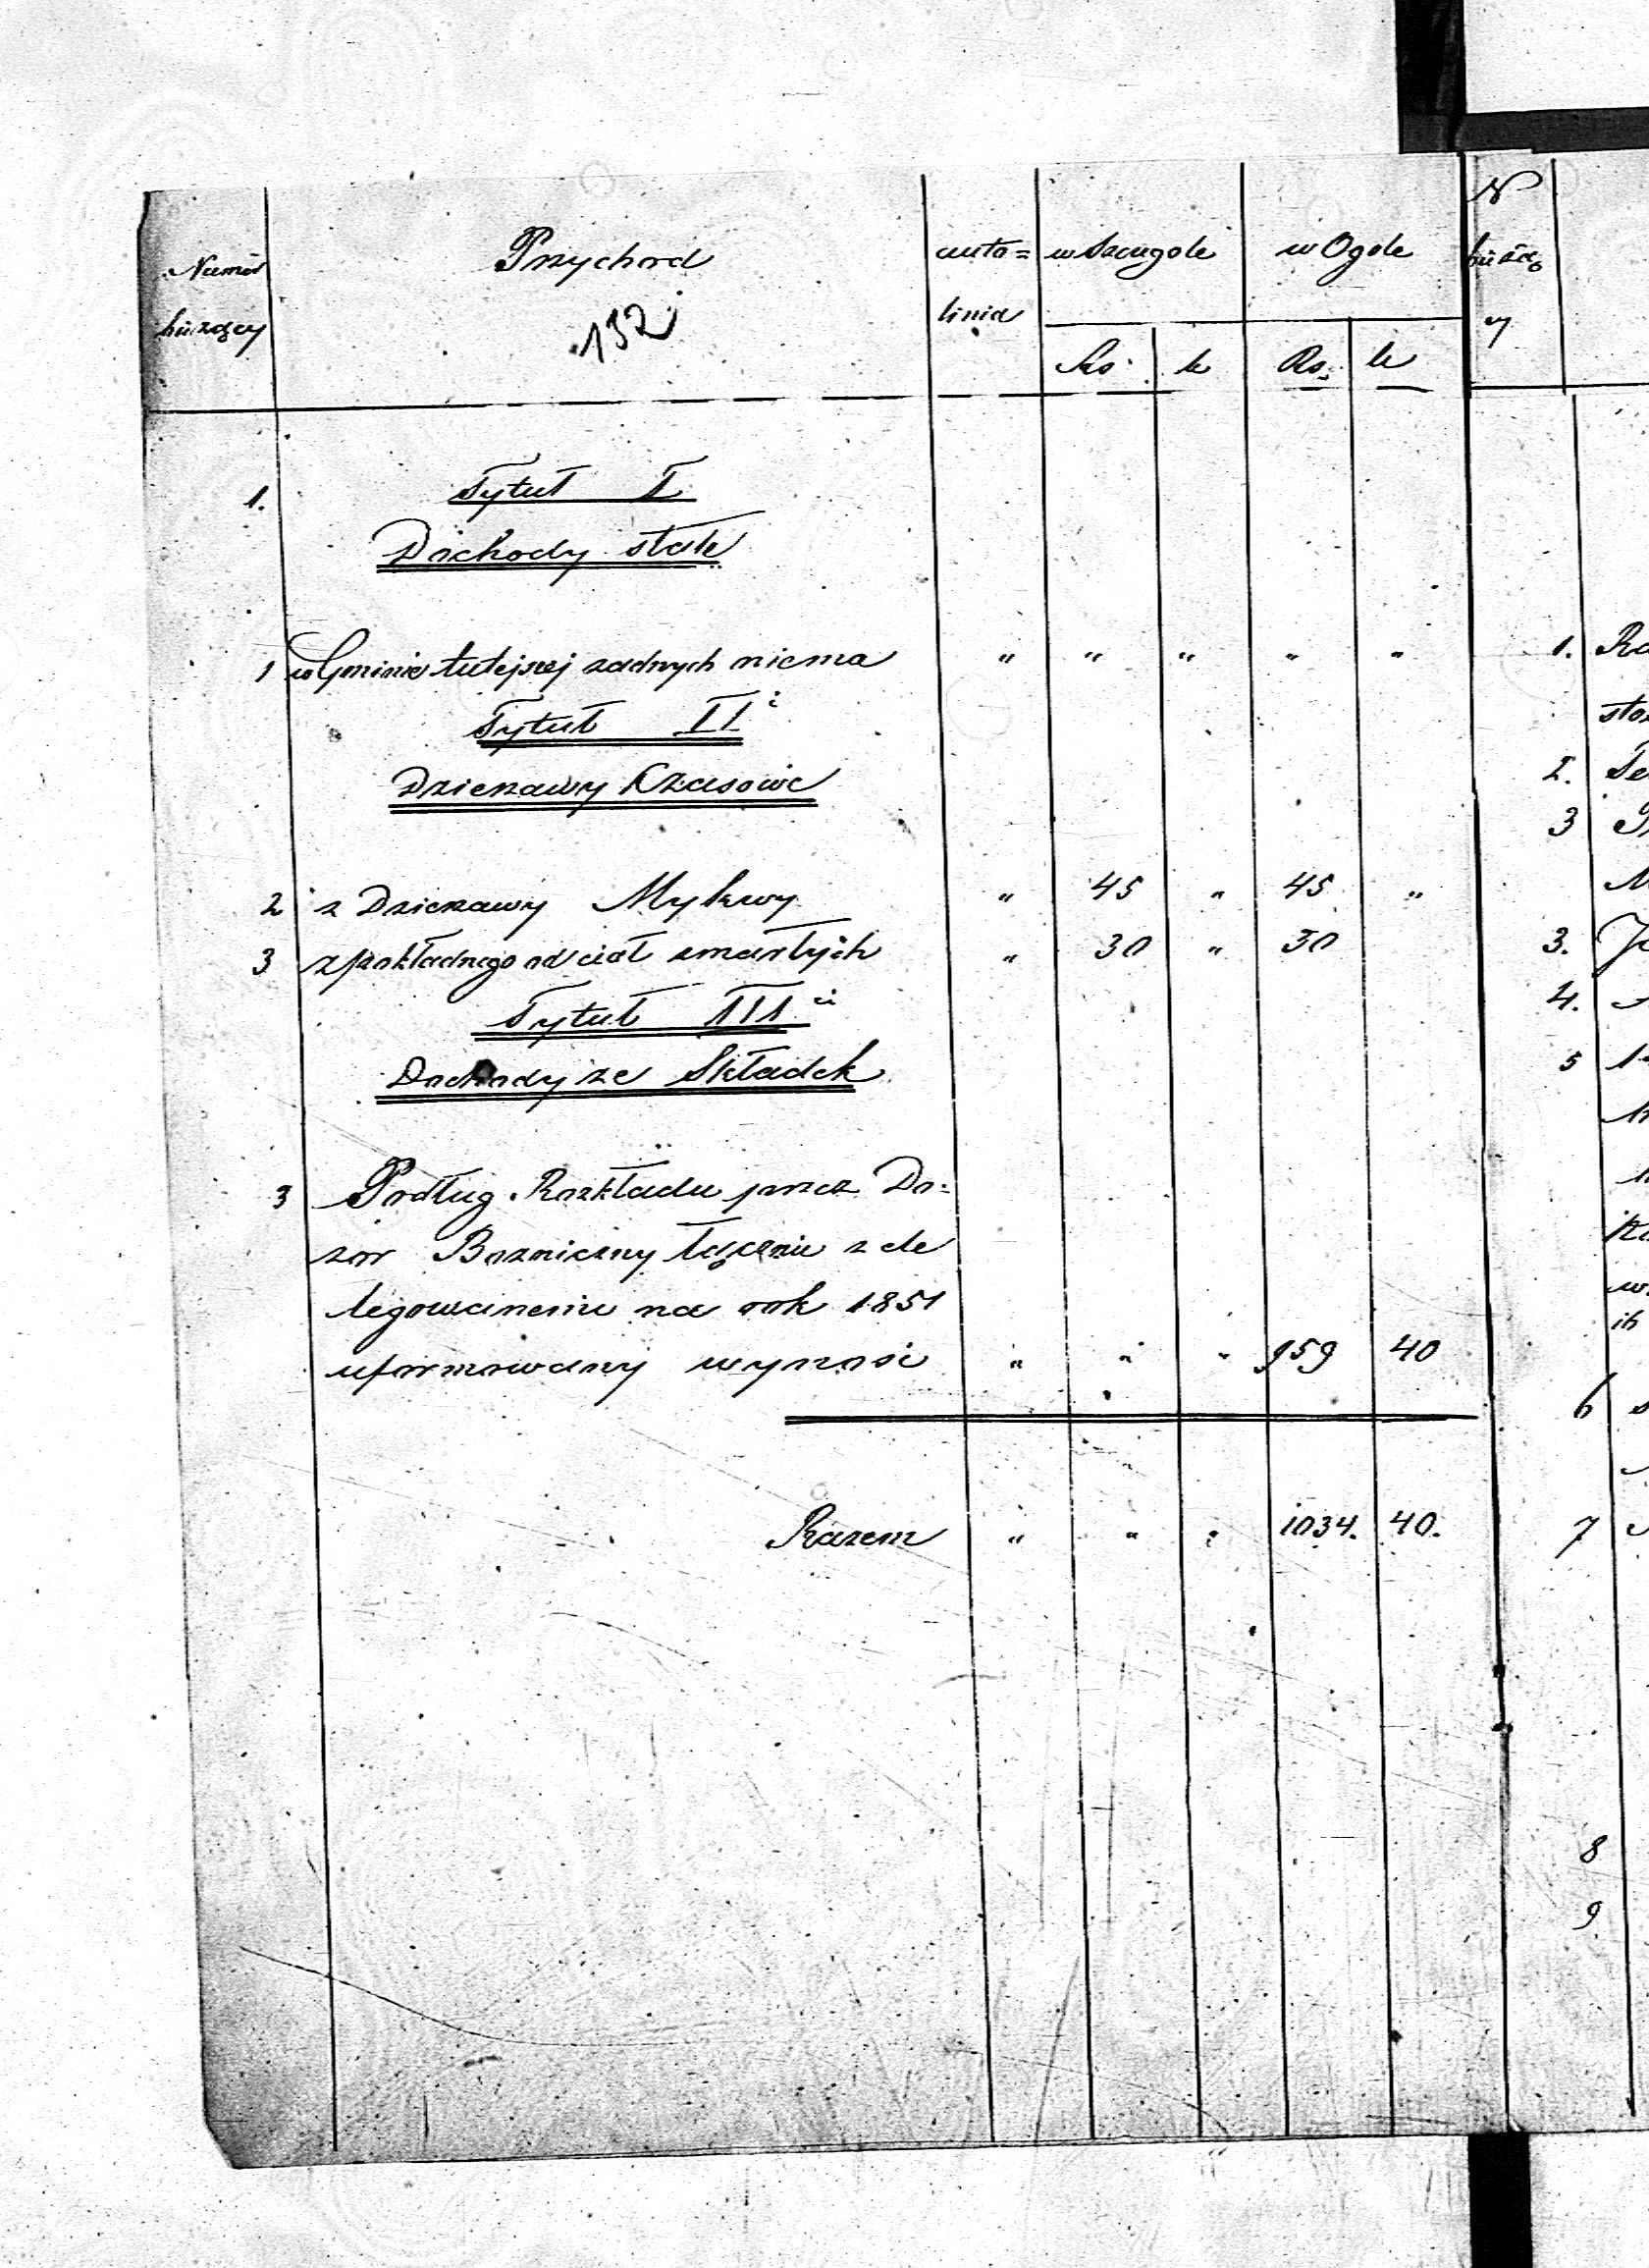 Numer
bieżący
Przychod
132
auto=
linia
w Szczugole
w Ogole
Rs. k
Rs. k
N
bieżą
y
1. Tytuł I
Dochody stałe
1 w Gminie tutejszej zadnych niema " " " " "
Tytuł II i
Dzierzawy Czasowe
2 z Dzierzawy Mykwy " 45 " 45 "
3 z pokładnego od ciał zmarłych " 30 " 30
Tytuł III ci
Dochody ze Składek
3 Podług Rozkładu przez Do=
zor Bozniczny łącznie z de
legowanemi na rok 1851
uformowany wynosi " " " 959 40
Razem " " " 1034. 40.
1.
sto
2.
3
3.
4.
5
6
7
8
9